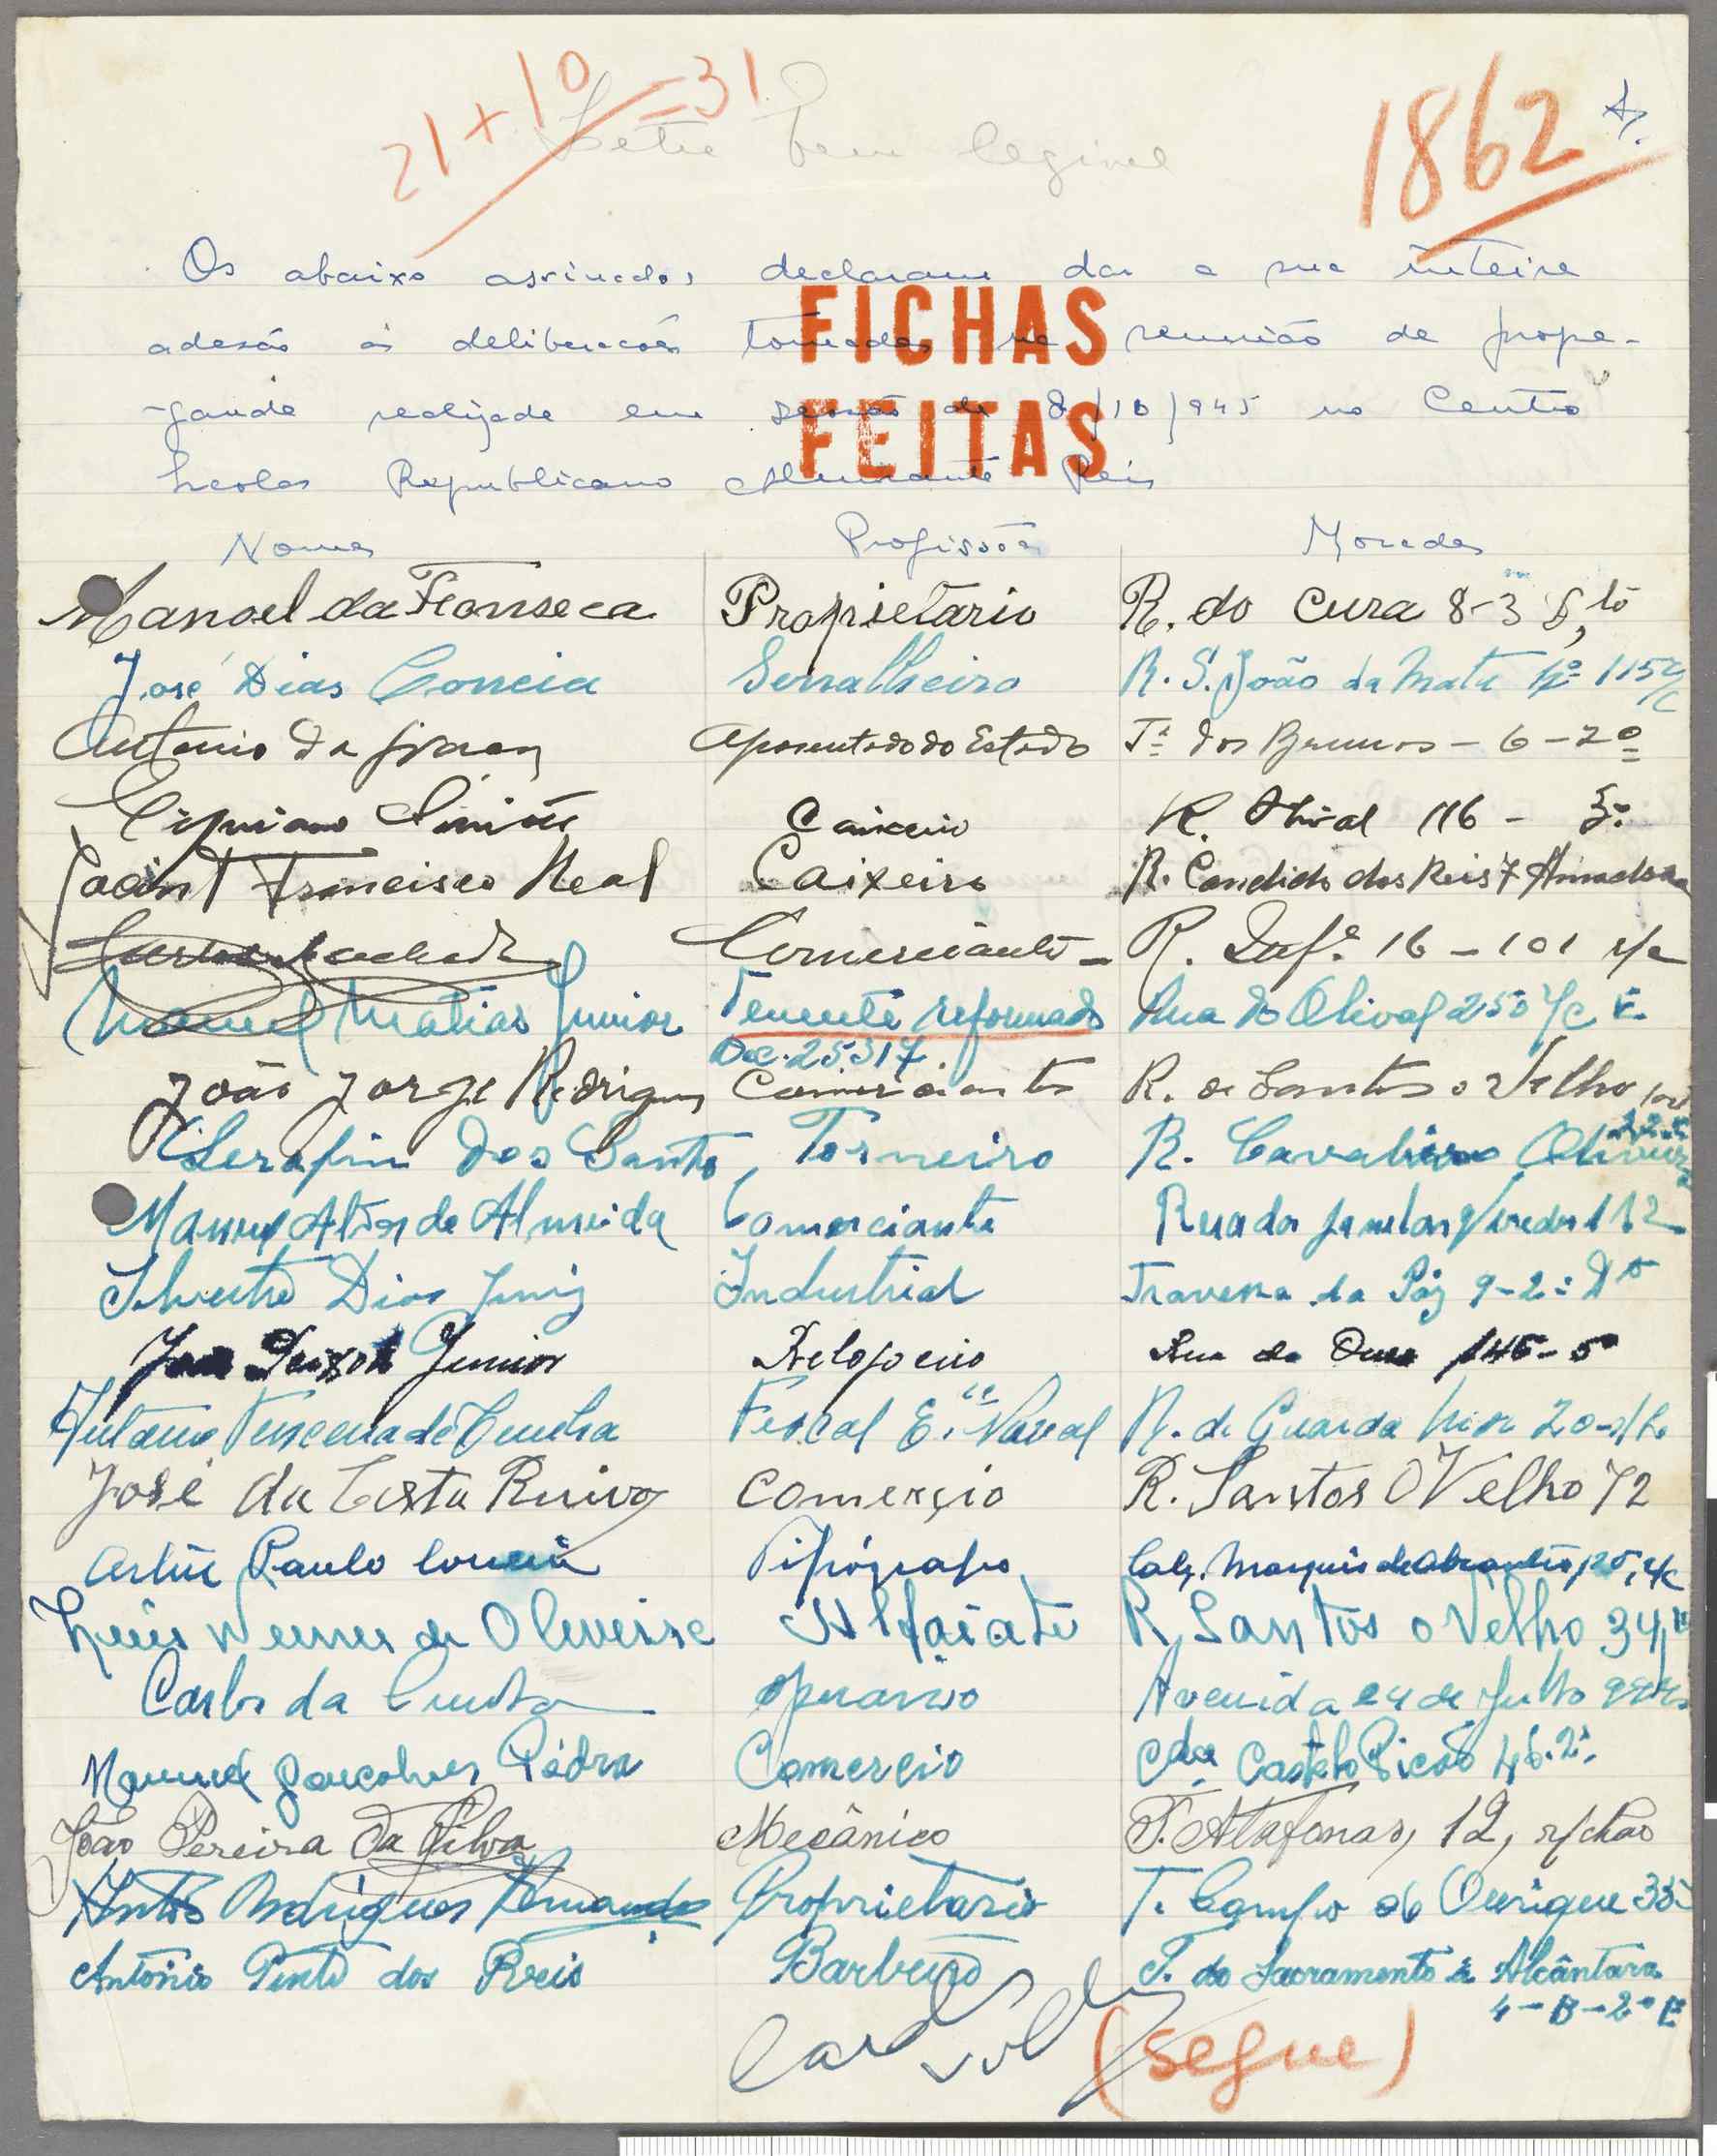 21 + 10 = 31
1862
Letra bem legivel
Os abaixo assinados declaram dar a sua inteira
adesão ás deliberacões tomadas na reunião de propa-
ganda realizada em sessão de 8/10/945 no Centro
Escolar Republicano Almirante Reis
FICHAS
FEITAS
Nomes Profissões Moradas
Manoel da Fonseca Proprietario R. do Cura 8-3 D,to
José Dias Correia Serralheiro R. S. João da Mata Nº 115 r/c
Antonio da Aposentado do Estado Tª dos Brunos - 6 - 2º
Cipriano Simões Caixeiro R. Olival 116 - 3º
Jacint Francisco Real Caixeiro R. Candido dos Reis 7 Amadora
Carlos Machado Comerciante R. Infª 16 - 101 r/c
Manuel Matias Junior Tenente reformado Rua do Olival 250 r/c E.
Dec. 25317.
João Jorge Rodrigues Comerciante R. de Santos o Velho
Serafim dos Santos, Torneiro R. Cavaleiro Oliveira
Manuel Alves de Almeida Comerciante Rua das Janelas Verdes 112
Silvestre Dias Juniz Industrial Travessa da Páz 9-2º Dto
Peixoto Junior Relojoeiro Rua do Ouro 145-5º
Antonio Ferreira da Cunha Fiscal E. Naval R. da Guarda Mor 20-r/c
José da Costa Ruivo Comercio R. Santos O Velho 72
Artur Paulo Correia Tipógrafo Calç. Marquês de Abrantes, 125, r/c
Luís Nunes de Oliveira Alfaiate R. Santos o Velho 34,
Carlos da Cunha Operario Avenida 24 de Julho
Manuel Gonçalves Pedra Comercio Cda Castelo Picão 46.2º.
João Pereira da Silva Mecânico T. Atafonas, 12, r/chão
Antó Rodrigues Fernandes Proprietario T. Campo de Ourique 33
António Pinto dos Reis Barbeiro T. do Sacramento á Alcântara
4-B-2º E
(segue)